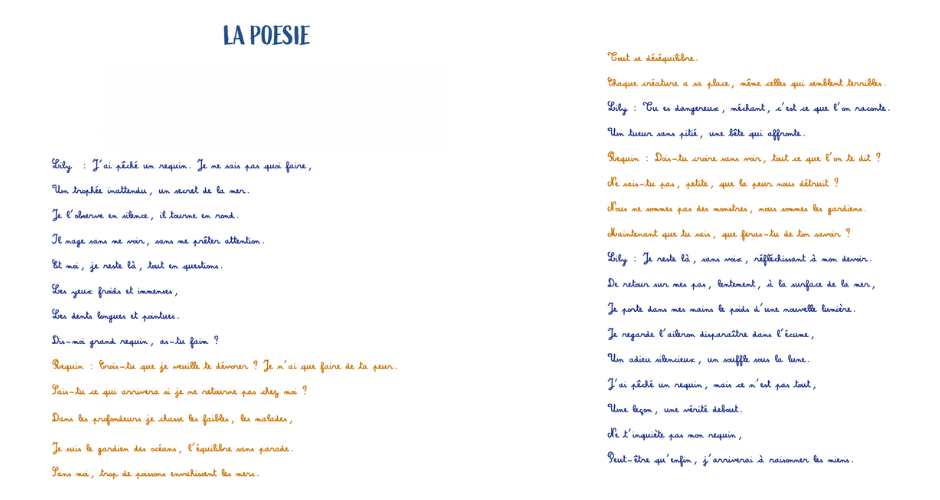 LA POESIE
Lily : J'ai pêché un requin. Je ne sais pas quoi faire,
Un trophée inattendu, un secret de la mer.
Je l'observe en silence, il tourne en rond.
Il nage sans me voir, sans me prêter attention.
Et moi, je reste là, tout en questions.
Les yeux froids et immenses,
Les dents longues et pointues.
Dis-moi grand requin, as-tu faim ?
Requin : Crois-tu que je veuille te dévorer ? Je n'ai que faire de ta peur.
Sais-tu ce qui arrivera si je ne retourne pas chez moi ?
Dans les profondeurs je chasse les faibles, les malades,
Je suis le gardien des océans, l'équilibre sans parade.
Sans moi, trop de poissons envahissent les mers.
Tout se déséquilibre.
Chaque créature a sa place, même celles qui semblent terribles.
Lily : Tu es dangereux, méchant, c'est ce que l'on raconte.
Un tueur sans pitié, une bête qui affronte.
Requin : Dois-tu croire sans voir, tout ce que l'on te dit ?
Ne sais-tu pas, petite, que la peur nous détruit ?
Nous ne sommes pas des monstres, nous sommes les gardiens.
Maintenant que tu sais, que feras-tu de ton savoir ?
Lily : Je reste là, sans voix, réfléchissant à mon devoir.
De retour sur mes pas, lentement, à la surface de la mer,
Je porte dans mes mains le poids d'une nouvelle lumière.
Je regarde l'aileron disparaître dans l'écume,
Un adieu silencieux, un souffle sous la lune.
J'ai pêché un requin, mais ce n'est pas tout,
Une leçon, une vérité debout.
Ne t'inquiète pas mon requin,
Peut-être qu'enfin, j'arriverai à raisonner les miens.